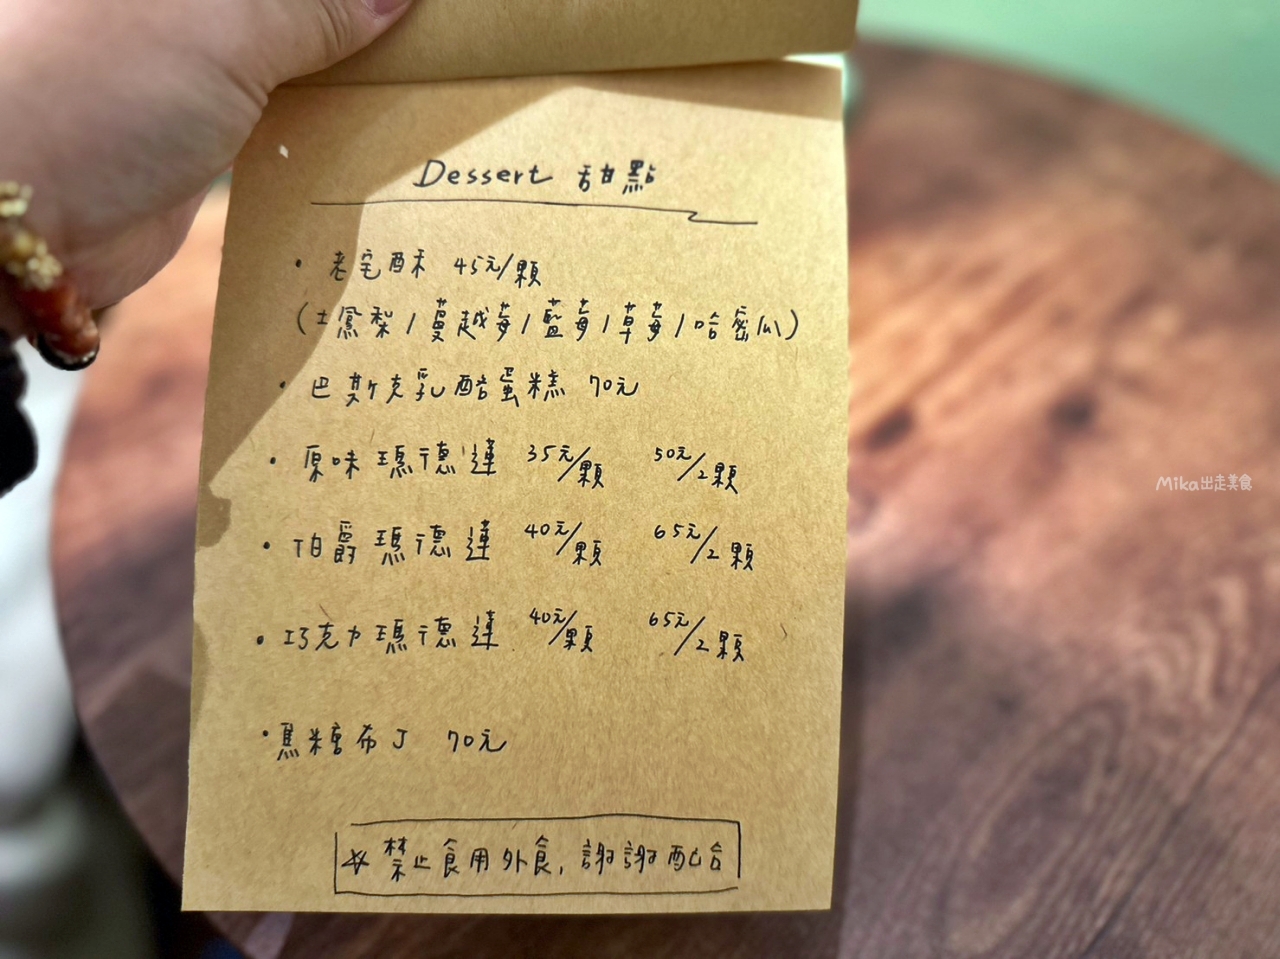 Dessert 甜點
• 老宅酥 45元/顆
(土鳳梨/蔓越莓/藍莓/草莓/哈密瓜)
• 巴斯克乳酪蛋糕 70元
• 原味瑪德蓮 35元/顆 50元/2顆
• 伯爵瑪德蓮 40元/顆 65元/2顆
• 巧克力瑪德蓮 40元/顆 65元/2顆
• 焦糖布丁 70元
☆ 禁止食用外食,謝謝配合
Mika出走美食